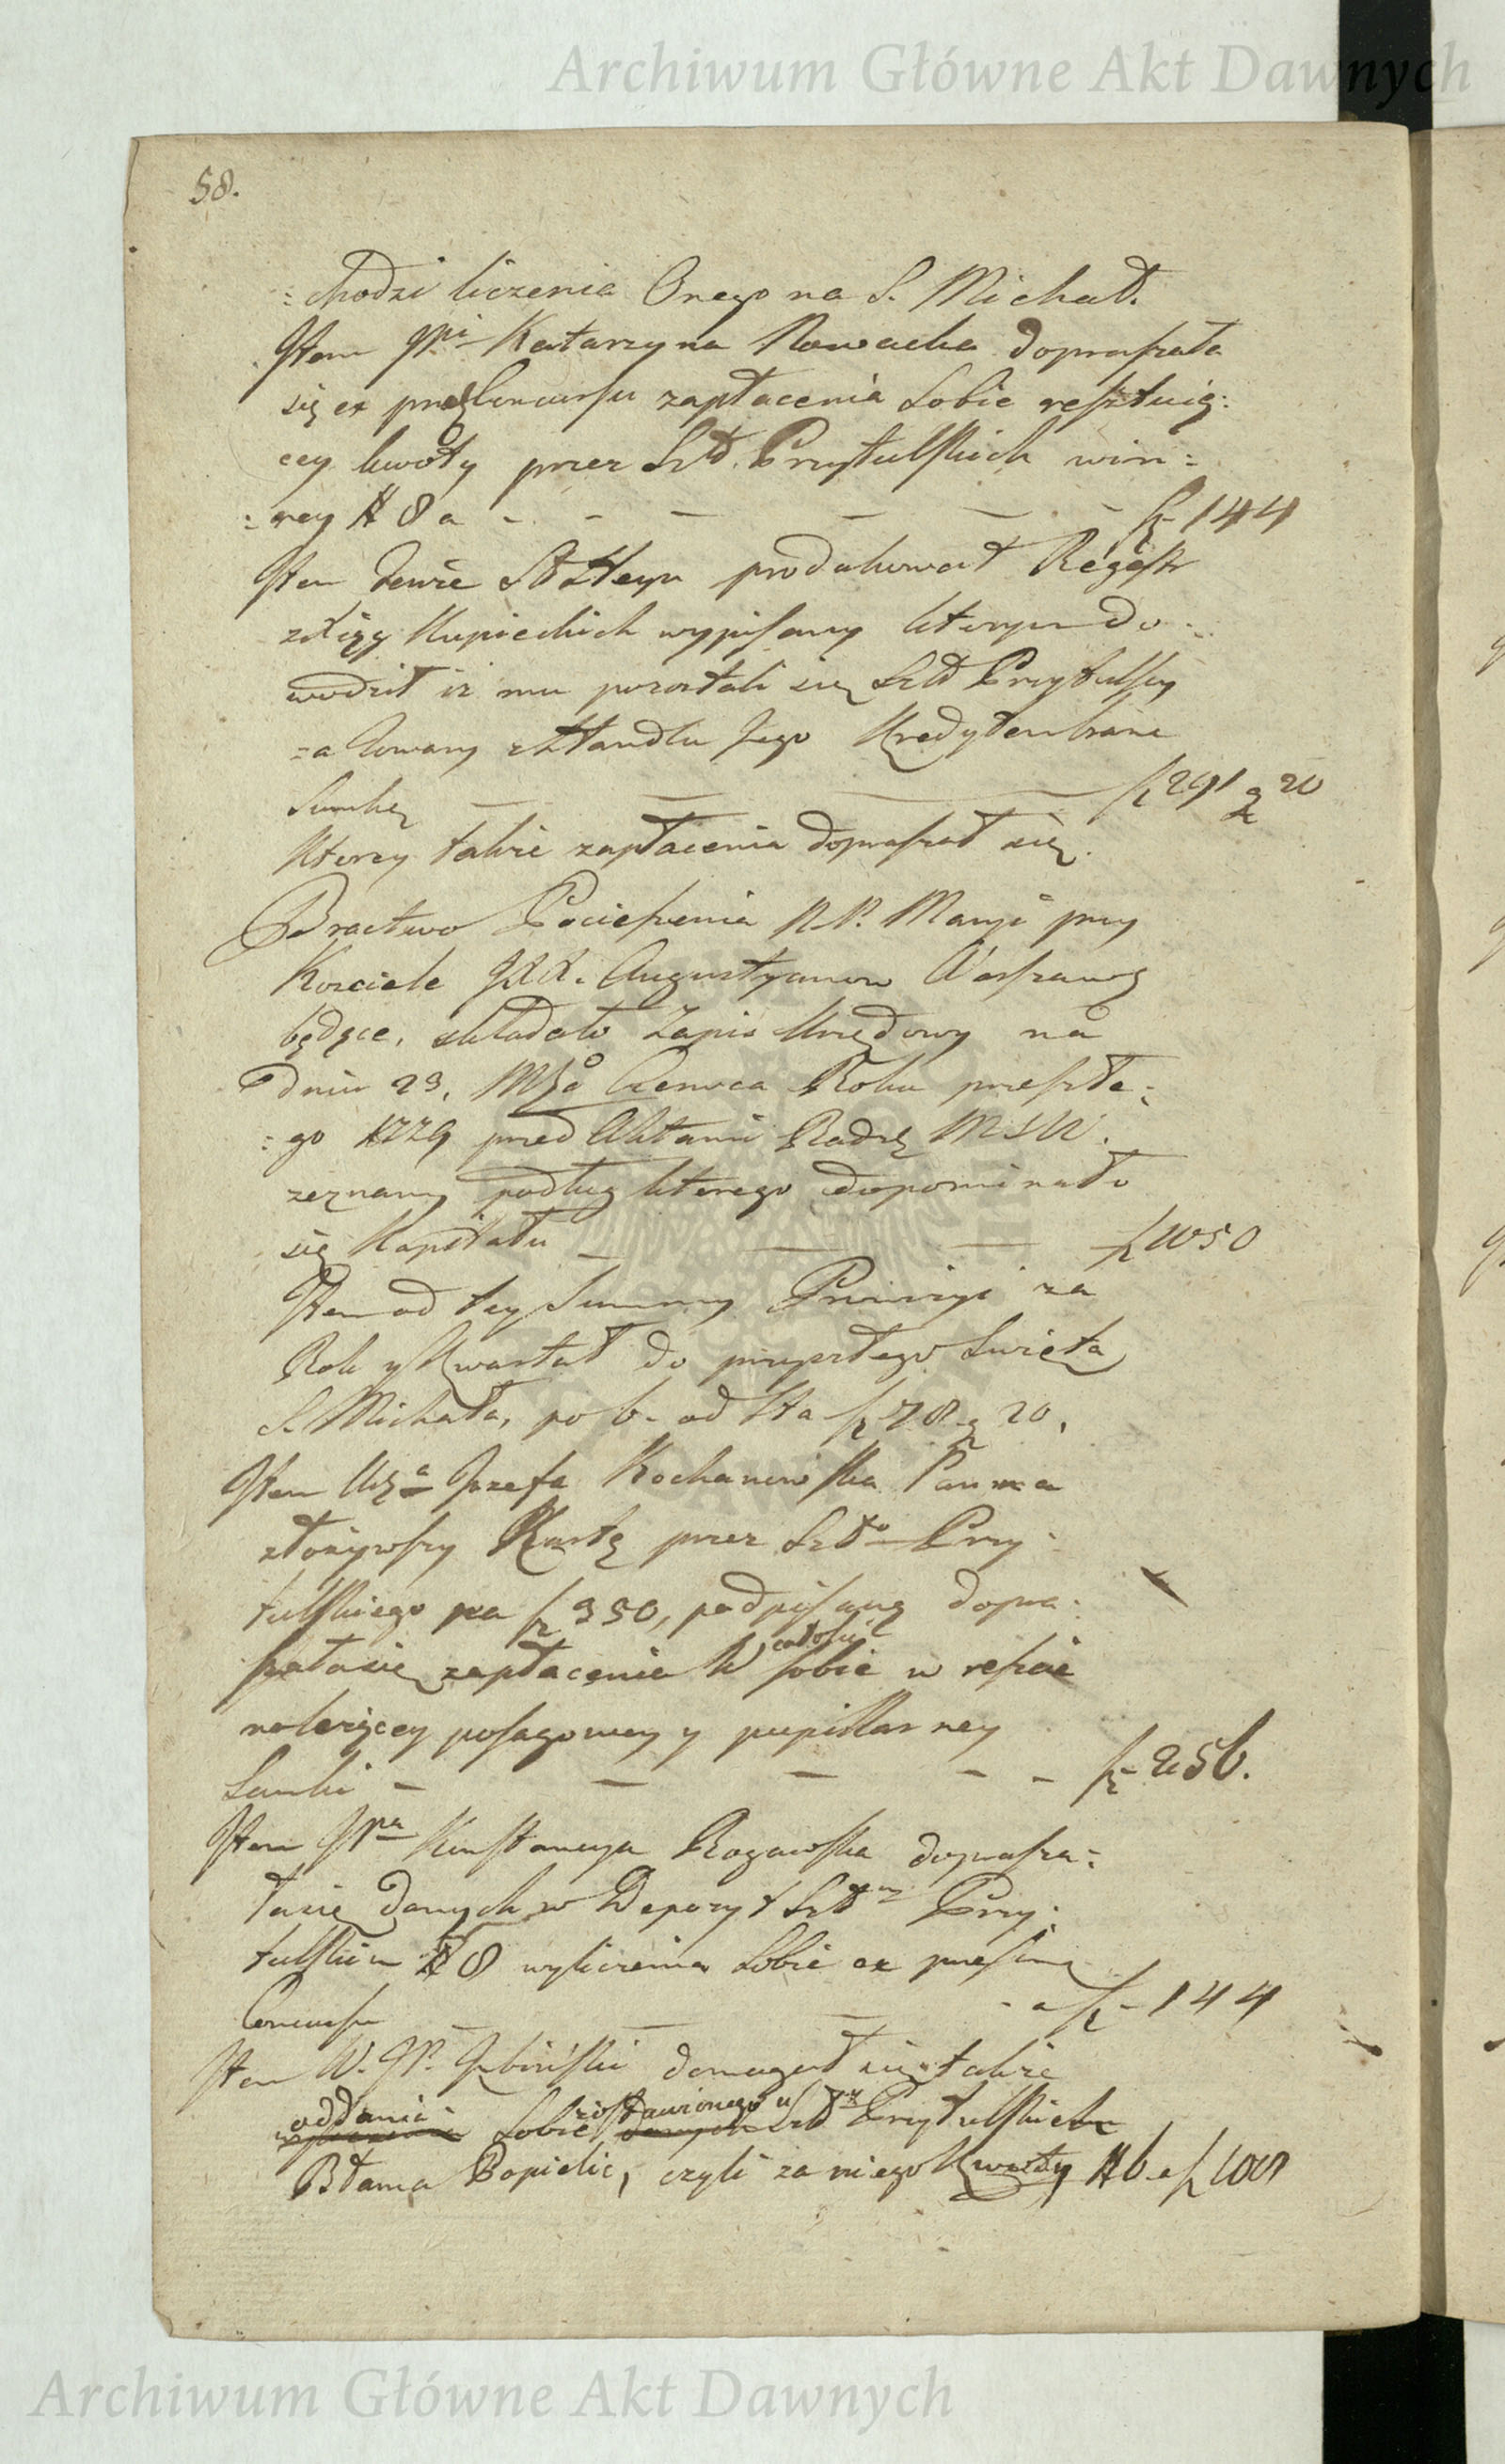 Archiwum Główne Akt Dawnych
58.
:chodzi liczenia Onego na S. Michał.
Item JPi Katarzyna Nowacka dopraszała
się ex præs Concursu zapłacenia Sobie resztuią:
cey kwoty przez Szld. Przytulskich win:
:ney # 8 a - - - - - - fl- 144
Item tenże produkował Regestr
z Xiąg Kupieckich wypisany którym do:
wodził iż mu pozostali się Szld Przytulscy
za Towary z Handlu Jego Kredytem brane
Sumkę - - - - fl 291 g 20
Ktorey także zapłacenia dopraszał się.
Bractwo Pocieszenia N. P. Maryi przy
Kosciele JXX. Augustyanow Warszawę
będące, składało Zapis Urzędowy na
dniu 23, Mca Czerwca Roku przeszłe:
:go 1779 przed Aktami Radzk M S W.
zeznany podług ktorego dopominało
się Kapitału - - - fl 1050
Item od tey Summy Prowizyi za
Rok y Kwartał do przyszłego Swięta
S. Michała, po 6. od Sta fl 78 g 20,
Item Urza Jozefa Kochanowska Panna
złożywszy Kartę przez Szldo Przy:
tulskiego na fl 350, podpisaną dopra:
szałasię zapłacenia W całości Sobie w reszcie
należącey posagowey y pupillarney
Sumki - - - - - fl- 256.
Item JPna Konstancya Rogawska doprasza:
łasię danych w Depozyt Szldm Przy:
tulskim # 8 wyliczenia Sobie ex præsenti
Concursu - - - - a fl- 144
Item W. JP. Izbiński domagał się także
oddania Sobie zostawionego u Szldch Przytulskich
Błama Popielic, czyli za niego Kwoty # 6. a fl 108
Archiwum Główne Akt Dawnych